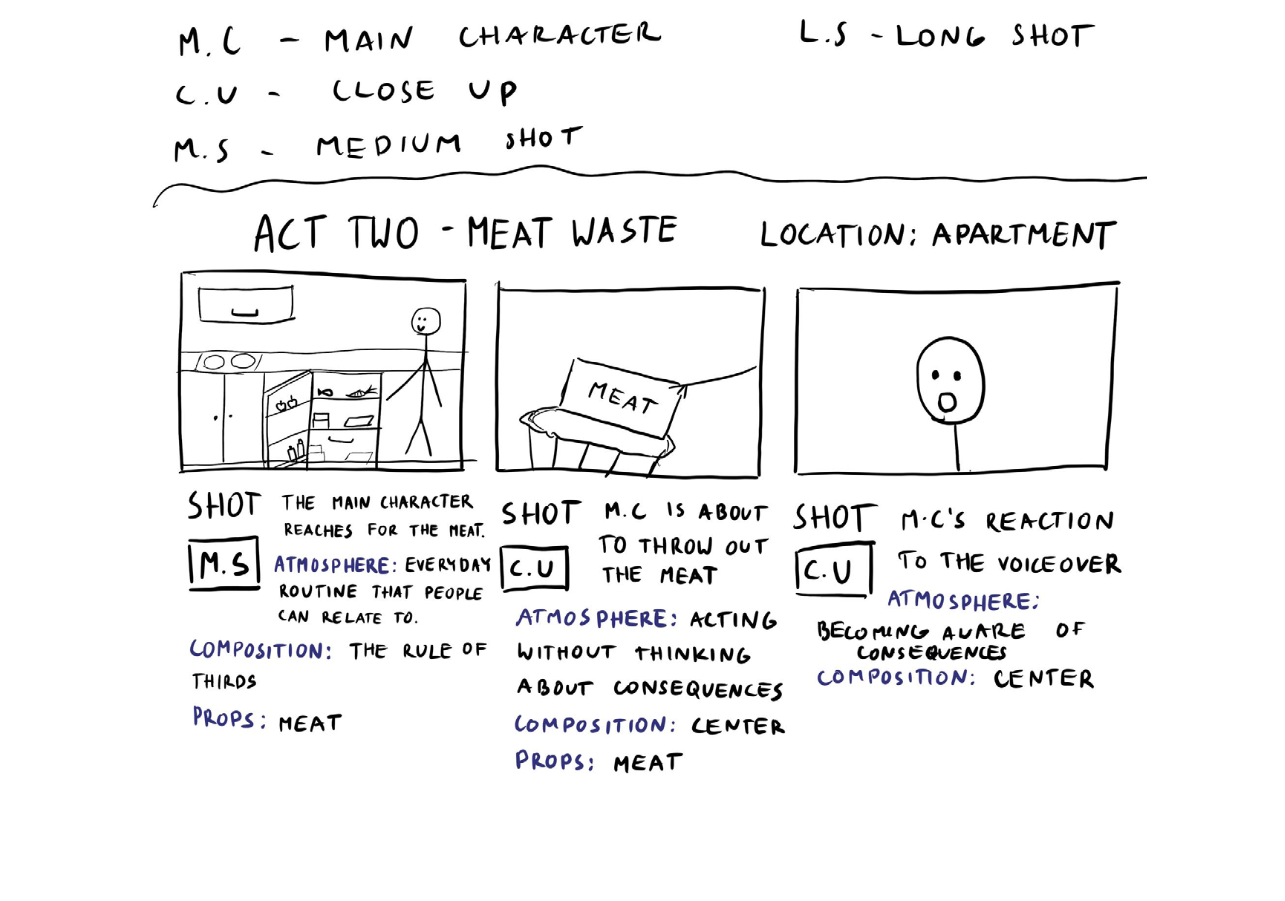 M.C - MAIN CHARACTER
L.S - LONG SHOT
C.U - CLOSE UP
M.S - MEDIUM SHOT
ACT TWO - MEAT WASTE
LOCATION: APARTMENT
MEAT
SHOT THE MAIN CHARACTER
REACHES FOR THE MEAT.
M.S
ATMOSPHERE: EVERYDAY
ROUTINE THAT PEOPLE
CAN RELATE TO.
COMPOSITION: THE RULE OF
THIRDS
PROPS: MEAT
SHOT M.C IS ABOUT
TO THROW OUT
C.U
THE MEAT
ATMOSPHERE: ACTING
WITHOUT THINKING
ABOUT CONSEQUENCES
COMPOSITION: CENTER
PROPS: MEAT
SHOT M.C'S REACTION
C.U
TO THE VOICEOVER
ATMOSPHERE:
BECOMING AWARE OF
CONSEQUENCES
COMPOSITION: CENTER